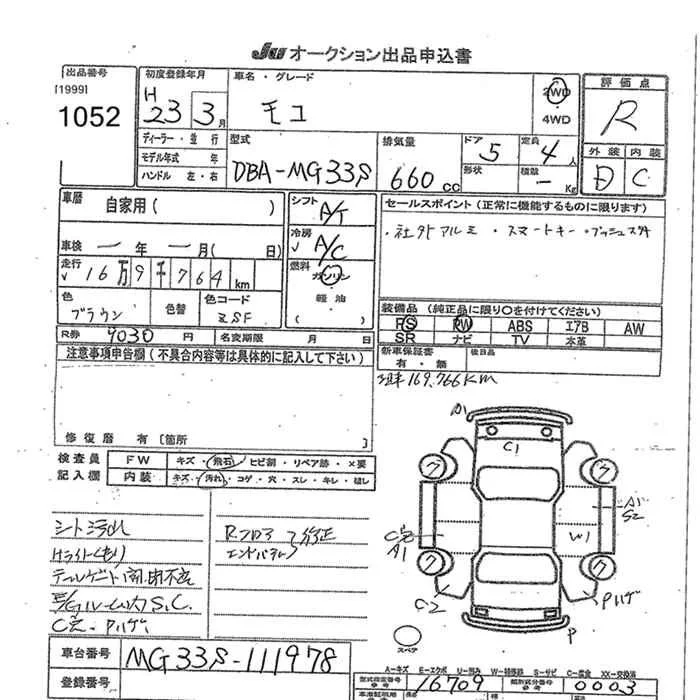 JU オークション出品申込書
出品番号
[1999]
1052
初度登録年月
H 23 3月
ディーラー・並行
モデル年式 年
ハンドル 左・右
車名・グレード
モコ
2WD
4WD
型式
DBA-MG33S
排気量
660 cc
ドア
5
形状
定員
4人
積載
- Kg
評価点
R
外装 内装
D C
車歴 自家用( )
車検 一年 一月( 日)
走行
√ 16万9千764km
色
ブラウン
色替
色コード
ZSF
シフト
A/T
冷房
√ A/C
燃料
ガソリン
軽油
( )
R券 9030円 名変期限 月 日
セールスポイント (正常に機能するものに限ります)
・社外アルミ・スマートキー・プッシュスタ
装備品 (純正品に限り○を付けてください)
PS PW ABS エアB AW
SR ナビ TV 本革
新車保証書
有・無
後日品
注意事項申告欄 (不具合内容等は具体的に記入して下さい)
169,766KM
修復歴 有 [箇所 ]
検査員
記入欄
FW キズ・飛石・ヒビ割・リペア跡・×要
内装 キズ・汚れ・コゲ・穴・スレ・キレ・破し
シート汚れ
Hライトくもり
S.C.
C穴・Pハゲ
Rフロア 修正
エンドパネル
A1
C1
A1
S2
W1
A1
C2
Pハゲ
P
スペア
車台番号 MG33S-111978
登録番号
A-キズ E-エクボ U-凹み W-補修跡 S-サビ C-腐食 XX-交換済
型式指定番号 16709
類別区分番号 0003